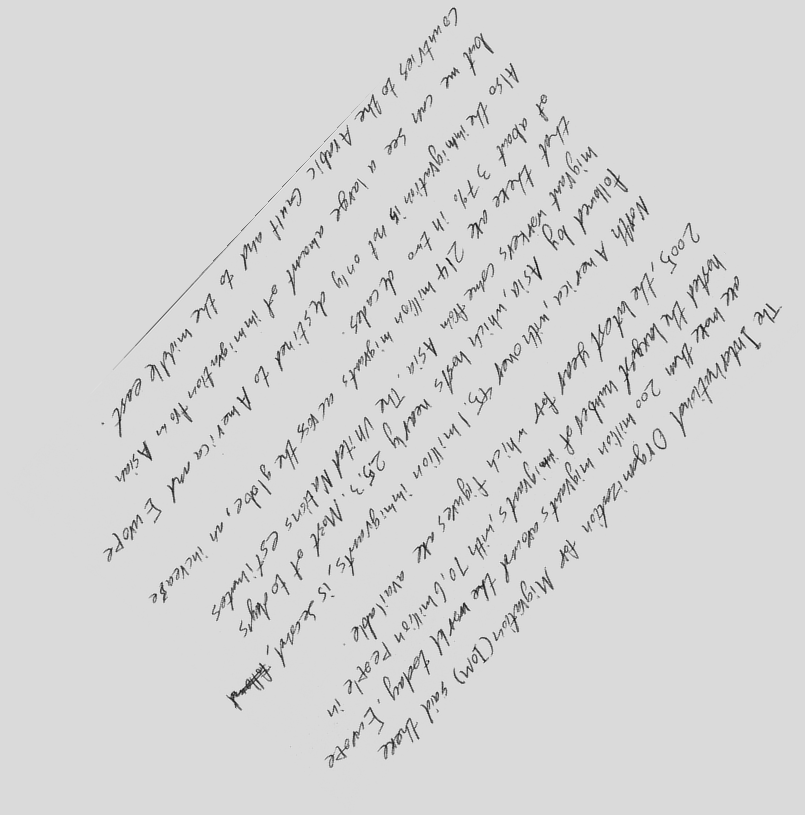 The International Organization for Migration (IOM) said there
are more than 200 million migrants around the world today. Europe
hosted the largest number of migrants with 70,6 million People in
2005, the latest year for which figures are available.
North America, with over 45.1 million immigrants, is second,
followed by Asia, which hosts nearly 25.3. Most of todays
migrant workers come from Asia. The United Nations estimates
that there are 214 million migrants across the globe, an increase
of about 37% in two decades.
Also the immigration is not only destined to America and Europe
but we can see a large amount of immigration from Asian
Countries to the Arabic Gwlf and to the middle east.